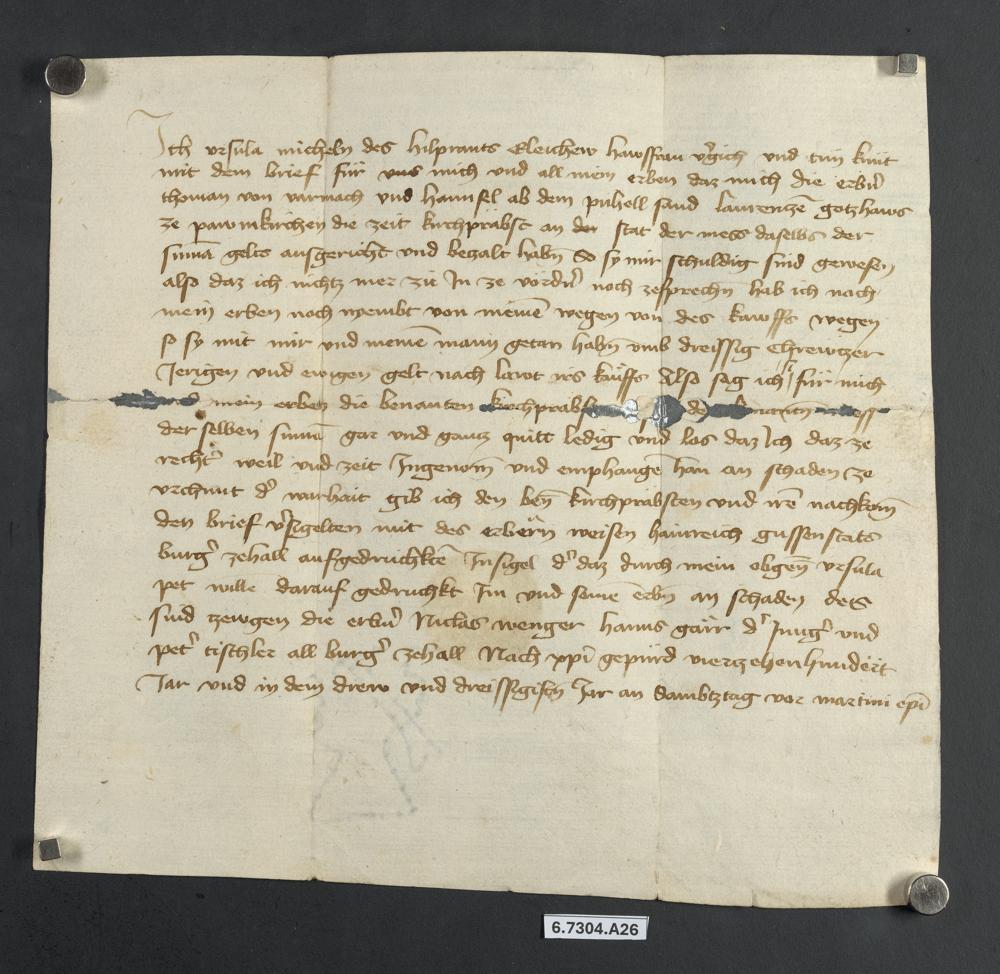 Ich vrsula micheln des hilprants Eleichew hawsfrau v'gich vnd tun kunt
mit dem brief für vns mich vnd all mein erben daz mich die erbn'
thoman von varmach vnd hannsel ab dem puhell sand laurenzen gotzhaws
ze pawmkirchen die zeit kirchpräbst an der stat der mess daselbs der
summ gelts ausgericht vnd bezalt habn So sy mir schuldig sind gewesen
also daz ich nichtz mer zu In ze vordn' noch zesprechn hab ich noch
mein erben noch nyembt von meinē wegen von des kawffs wegen
so sy mit mir vnd meinē mann getan habn vmb dreissig Chrewtzer
Jerigen vnd ewigen gelt nach lawt irs kauffs Also sag ich für mich
vnd mein erben die benanten kirchprabst
der selben summē gar vnd gantz quitt ledig vnd los daz Ich daz ze
recht' weil vnd zeit Ingenom vnd emphangē han an schaden ze
vrchunt d' warhait gib ich den ben kirchprabsten vnd irē nachkom
den brief v'sigelten mit des erbern weisen hainreich gussenstats
burg' zehall aufgedruchktē Insigel d' daz durch mein obgen vrsula
pet wille darauf gedruchkt Im vnd seinē erbn an schaden des
sind tzewgen die erbn' Niclas wenger hanns gärr d' Jung' vnd
pet' tischler all burg' zehall Nach xpi gepurd vierzehenhundert
Jar vnd in dem drew vnd dreissigistn Jar an Sambtztag vor martini epi
6.7304.A26